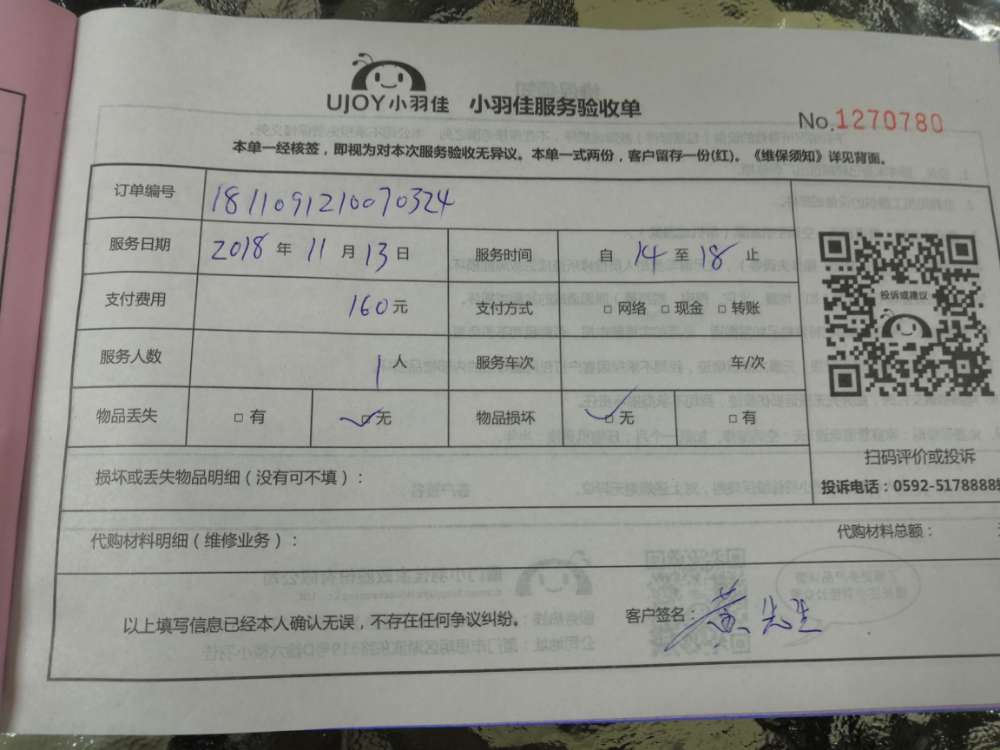 UJOY小羽佳 小羽佳服务验收单
No.1270780
本单一经核签，即视为对本次服务验收无异议。本单一式两份，客户留存一份(红)。《维保须知》详见背面。
订单编号 1811091210070324
服务日期 2018 年 11 月 13 日 服务时间 自 14 至 18 止
投诉或建议
支付费用 160 元 支付方式 □ 网络 □ 现金 □ 转账
服务人数 1 人 服务车次 车/次
物品丢失 □ 有 ✓□ 无 物品损坏 ✓□ 无 □ 有
扫码评价或投诉
损坏或丢失物品明细（没有可不填）：
投诉电话：0592-5178888
代购材料明细（维修业务）： 代购材料总额：
以上填写信息已经本人确认无误，不存在任何争议纠纷。 客户签名：黄先生